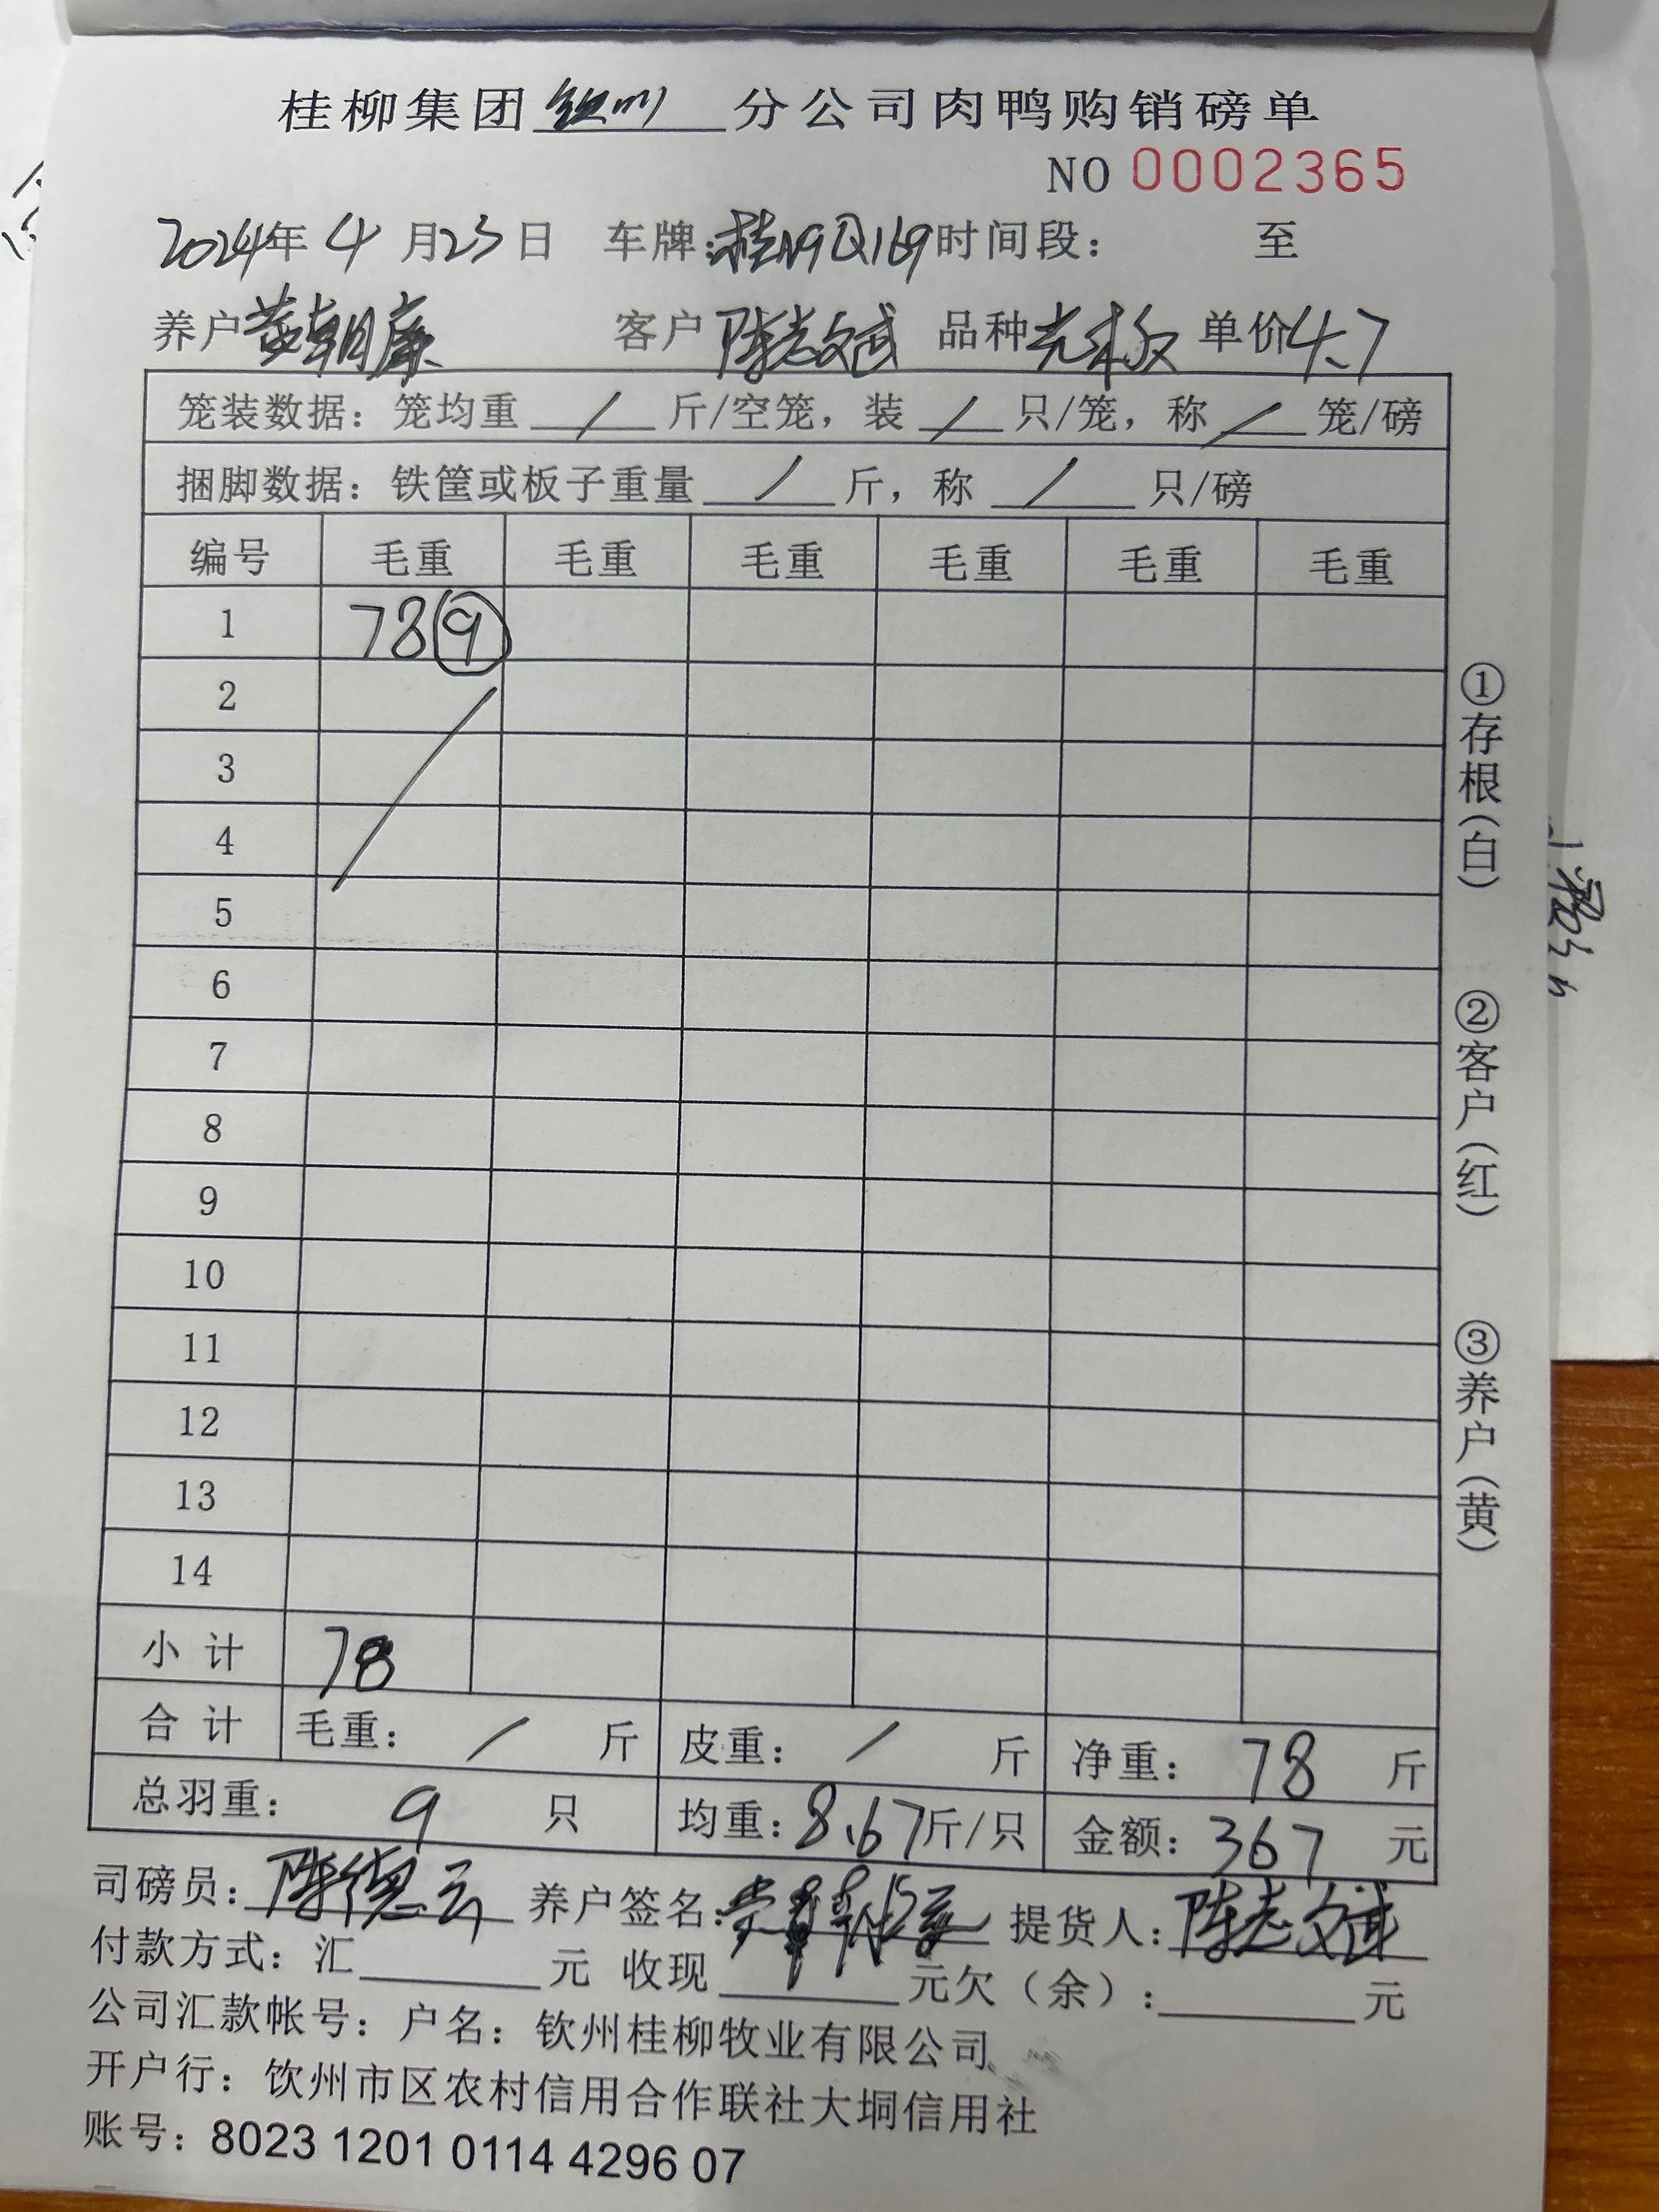 桂柳集团钦州分公司肉鸭购销磅单
NO 0002365
2024年4月23日 车牌:桂N9Q169时间段: 至
养户黄朝廉 客户陈志斌 品种 单价4.7
笼装数据:笼均重 / 斤/空笼,装 / 只/笼,称 / 笼/磅
捆脚数据:铁筐或板子重量 / 斤,称 / 只/磅
编号 毛重 毛重 毛重 毛重 毛重 毛重
1 78⑨
2
3
4
5
6
7
8
9
10
11
12
13
14
小计 78
合计 毛重: / 斤 皮重: / 斤 净重: 78 斤
总羽重: 9 只 均重:8.67斤/只 金额:367 元
司磅员:陈德云 养户签名: 提货人:陈志斌
付款方式:汇 元 收现 元欠(余): 元
公司汇款帐号:户名:钦州桂柳牧业有限公司
开户行:钦州市区农村信用合作联社大垌信用社
账号:8023 1201 0114 4296 07
①存根(白)
②客户(红)
③养户(黄)